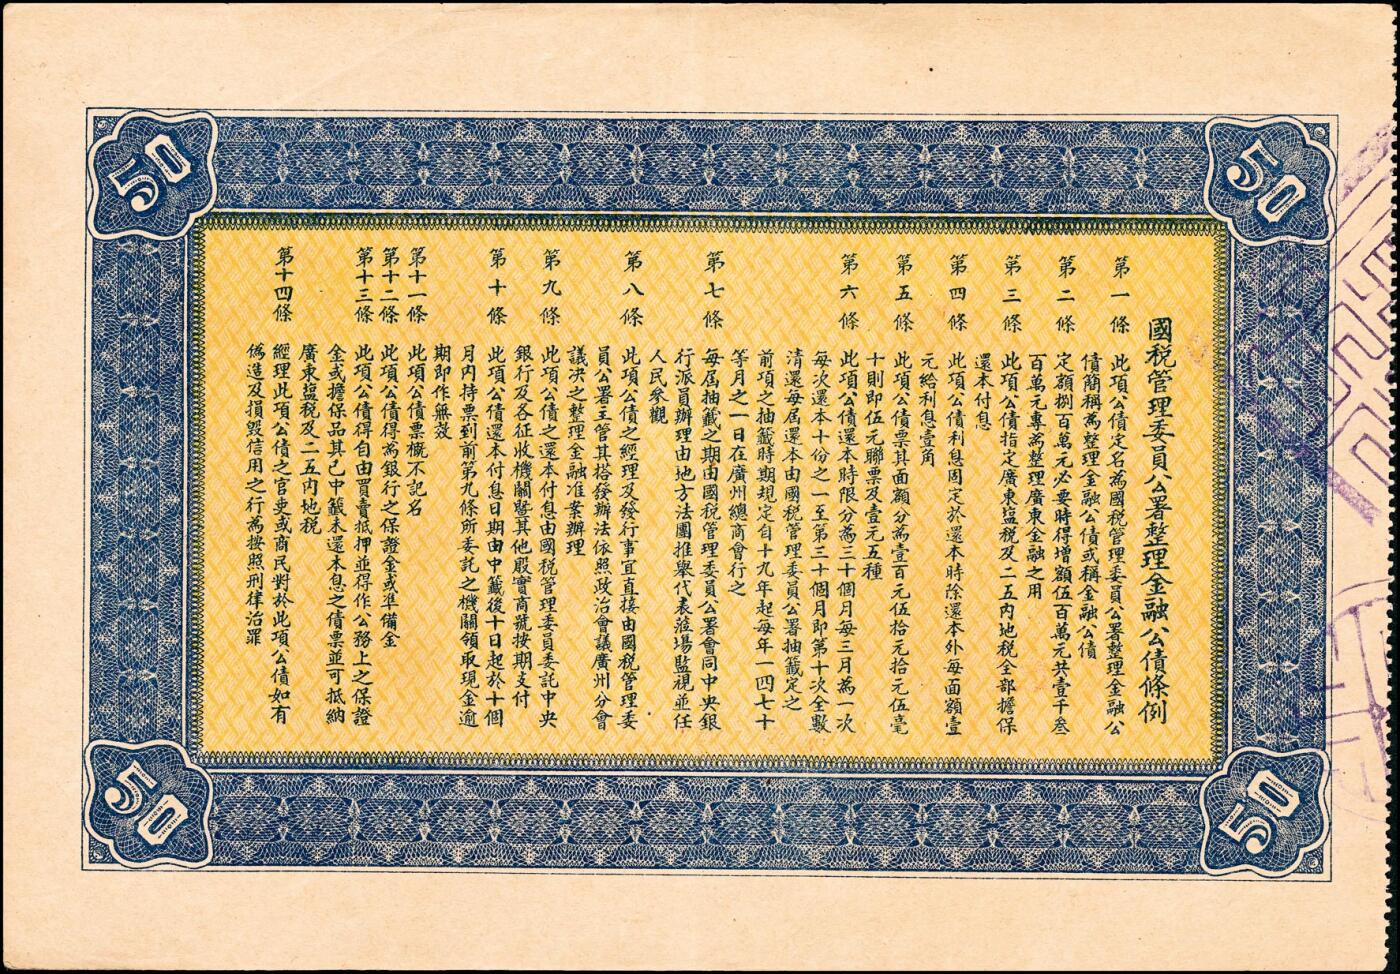 50
50
國税管理委員公署整理金融公債條例
第一條 此項公債定名為國税管理委員公署整理金融公
債簡稱為整理金融公債或稱金融公債
第二條 定額捌百萬元必要時得增額伍百萬元共壹千叁
百萬元專為整理廣東金融之用
第三條 此項公債指定廣東塩税及二五內地税全部擔保
還本付息
第四條 此項公債利息固定於還本時除還本外每面額壹
元給利息壹角
第五條 此項公債票其面額分為壹百元伍拾元拾元伍毫
十則即伍元聯票及壹元五種
第六條 此項公債還本時限分為三十個月每三月為一次
每次還本十份之一至第三十個月即第十次全數
清還每屆還本由國税管理委員公署抽籤定之
前項之抽籤時期規定自十九年起每年一四七十
等月之一日在廣州總商會行之
第七條 每屆抽籤之期由國税管理委員公署會同中央銀
行派員辦理由地方法團推舉代表蒞場監視並任
人民參觀
第八條 此項公債之經理及發行事宜直接由國税管理委
員公署主管其搭發辦法依照政治會議廣州分會
議决之整理金融准案辦理
第九條 此項公債之還本付息由國税管理委員委託中央
銀行及各征收機關暨其他殷實商號按期支付
第十條 此項公債還本付息日期由中籤後十日起於十個
月內持票到前第九條所委託之機關領取現金逾
期即作無效
第十一條 此項公債票概不記名
第十二條 此項公債得為銀行之保證金或準備金
第十三條 此項公債得自由買賣抵押並得作公務上之保證
金或擔保品其已中籤未還本息之債票並可抵納
廣東塩税及二五內地税
第十四條 經理此項公債之官吏或商民對於此項公債如有
偽造及損毀信用之行為按照刑律治罪
50
50